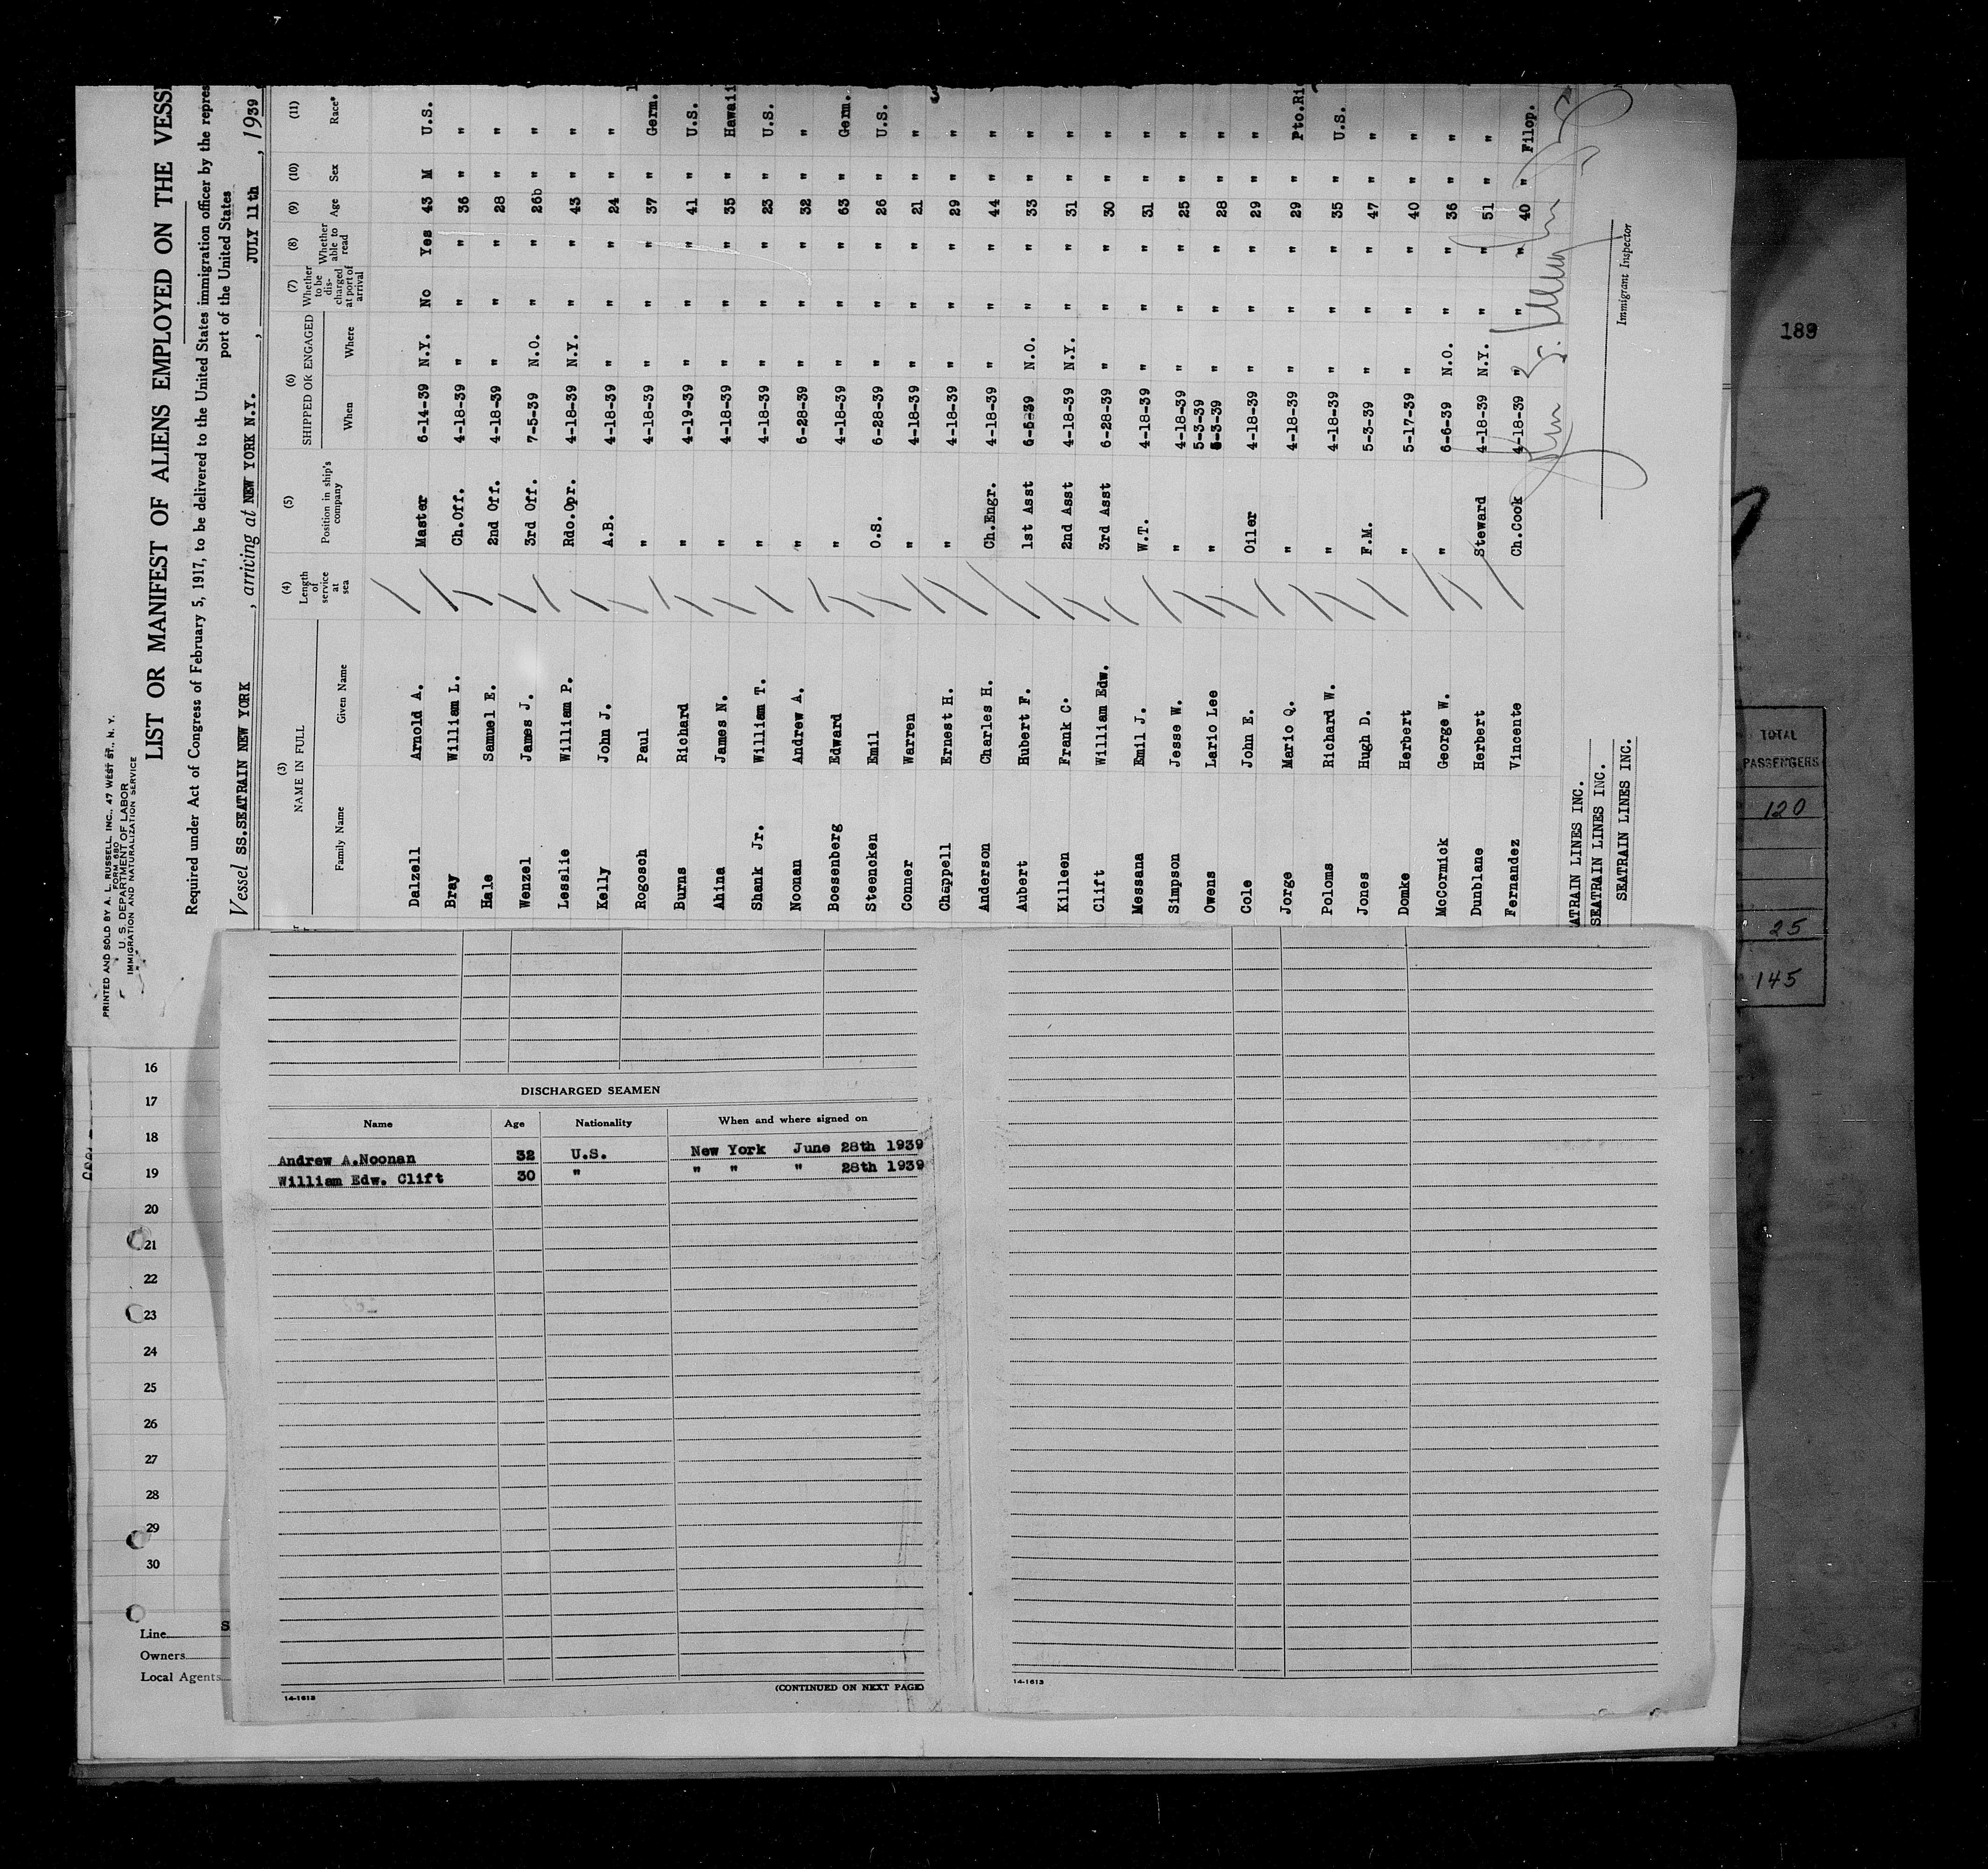 PRINTED AND SOLD BY A. L. RUSSELL, INC., 47 WEST ST., N. Y.
FORM 680
U. S. DEPARTMENT OF LABOR
IMMIGRATION AND NATURALIZATION SERVICE
LIST OR MANIFEST OF ALIENS EMPLOYED ON THE VESS
Required under Act of Congress of February 5, 1917, to be delivered to the United States immigration officer by the repres
port of the United States
Vessel SS.SEATRAIN NEW YORK, arriving at NEW YORK N.Y., JULY 11th, 1939
(3) (4) (5) (6) (7) (8) (9) (10) (11)
NAME IN FULL Length of service at sea Position in ship's company SHIPPED OR ENGAGED Whether to be discharged at port of arrival Whether able to read Age Sex Race*
Family Name Given Name When Where
Dalzell Arnold A. Master 6-14-39 N.Y. No Yes 43 M U.S.
Bray William L. Ch.Off. 4-18-39 " " " 36 " "
Hale Samuel E. 2nd Off. 4-18-39 " " " 28 " "
Wenzel James J. 3rd Off. 7-5-39 N.O. " " 26b " "
Lesslie William P. Rdo.Opr. 4-18-39 N.Y. " " 43 " "
Kelly John J. A.B. 4-18-39 " " " 24 " "
Rogosch Paul " 4-18-39 " " " 37 " Germ.
Burns Richard " 4-19-39 " " " 41 " U.S.
Ahina James N. " 4-18-39 " " " 35 " Hawaii
Shank Jr. William T. " 4-18-39 " " " 23 " U.S.
Noonan Andrew A. " 6-28-39 " " " 32 " "
Boesenberg Edward " 4-18-39 " " " 63 " Germ.
Steencken Emil O.S. 6-28-39 " " " 26 " U.S.
Conner Warren " 4-18-39 " " " 21 " "
Chappell Ernest H. " 4-18-39 " " " 29 " "
Anderson Charles H. Ch.Engr. 4-18-39 " " " 44 " "
Aubert Hubert F. 1st Asst 6-6-39 N.O. " " 33 " "
Killeen Frank C. 2nd Asst 4-18-39 N.Y. " " 31 " "
Clift William Edw. 3rd Asst 6-28-39 " " " 30 " "
Messana Emil J. W.T. 4-18-39 " " " 31 " "
Simpson Jesse W. " 4-18-39 " " " 25 " "
5-3-39
Owens Lario Lee " 5-3-39 " " " 28 " "
Cole John E. Oiler 4-18-39 " " " 29 " "
Jorge Mario Q. " 4-18-39 " " " 29 " Pto.Ri
Poloms Richard W. " 4-18-39 " " " 35 " U.S.
Jones Hugh D. F.M. 5-3-39 " " " 47 " "
Domke Herbert " 5-17-39 " " " 40 " "
McCormick George W. " 6-6-39 N.O. " " 36 " "
Dunblane Herbert Steward 4-18-39 N.Y. " " 51 " "
Fernandez Vincente Ch.Cook 4-18-39 " " " 40 " Filop.
ATRAIN LINES INC.
SEATRAIN LINES INC.
SEATRAIN LINES INC.
Immigrant Inspector
189
TOTAL
PASSENGERS
120
25
145
16
17
18
19
20
21
22
23
24
25
26
27
28
29
30
Line
S
Owners
Local Agents
DISCHARGED SEAMEN
Name Age Nationality When and where signed on
Andrew A.Noonan 32 U.S. New York June 28th 1939
William Edw. Clift 30 " " " " 28th 1939
14-1613
(CONTINUED ON NEXT PAGE)
14-1613